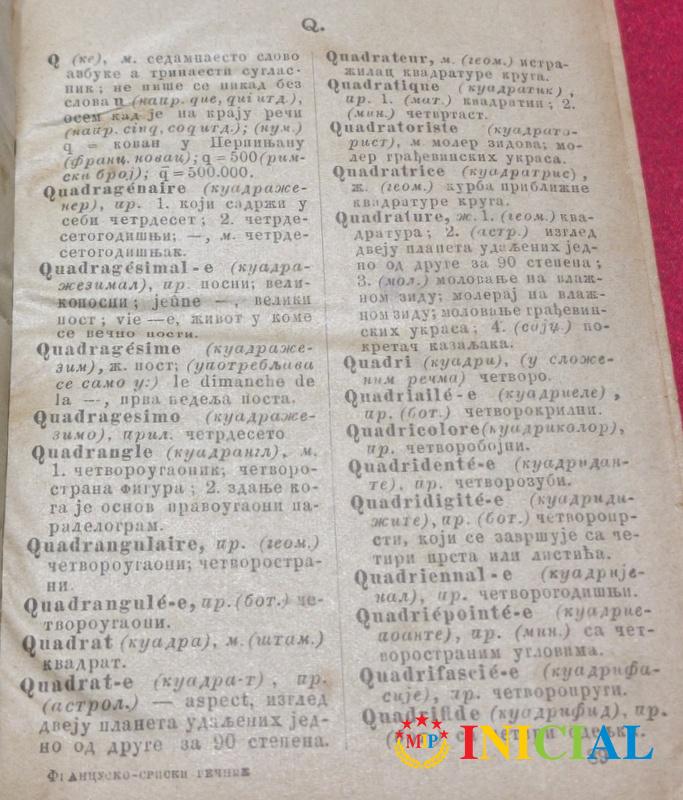 Q.
Q (ке), м. седамнаесто слово
азбуке а тринаести суглас-
ник; не пише се никад без
слова u (напр. que, qui итд.),
осем кад је на крају речи
(напр. cinq, coq итд.); (нум.)
q = кован у Перпињану
(франц. новац); q = 500 (рим-
ски број); q̄ = 500.000.
Quadragénaire (куадраже-
нер), пр. 1. који садржи у
себи четрдесет; 2. четрде-
сетогодишњи; —, м. четрде-
сетогодишњак.
Quadragésimal-e (куадра-
жезимал), пр. посни; вели-
копосни; jeûne —, велики
пост; vie —e, живот у коме
се вечно пости.
Quadragésime (куадраже-
зим), ж. пост; (употребљива
се само у:) le dimanche de
la —, прва недеља поста.
Quadragesimo (куадраже-
зимо), прил. четрдесето
Quadrangle (куадрангл), м.
1. четвороугаоник; четворо-
страна фигура; 2. здање ко-
га је основ правоугаони па-
ралелограм.
Quadrangulaire, пр. (геом.)
четвороугаони; четворостра-
ни.
Quadrangulé-e, пр. (бот.) че-
твороугаони.
Quadrat (куадра), м. (штам.)
квадрат.
Quadrat-e (куадра-т), пр.
(астрол.) — aspect, изглед
двеју планета удаљених јед-
но од друге за 90 степена.
Француско-српски речник
Quadrateur, м. (геом.) истра-
жилац квадратуре круга.
Quadratique (куадратик),
пр. 1. (мат.) квадратни; 2.
(мин.) четвртаст.
Quadratoriste (куадрато-
рист), м. молер зидова; мо-
лер грађевинских украса.
Quadratrice (куадратрис),
ж. (геом.) курба приближне
квадратуре круга.
Quadrature, ж. 1. (геом.) ква-
дратура; 2. (астр.) изглед
двеју планета удаљених јед-
но од друге за 90 степена;
3. (мол.) моловање на влаж-
ном зиду; молерај на влаж-
ном зиду; моловање грађевин-
ских украса; 4. (сајџ.) по-
кретач казаљака.
Quadri (куадри), (у сложе-
ним речма) четворо.
Quadriailé-e (куадриеле),
пр. (бот.) четворокрилни.
Quadricolore (куадриколор),
пр. четворобојни.
Quadridenté-e (куадридан-
те), пр. четворозуби.
Quadridigité-e (куадриди-
жите), пр. (бот.) четворопр-
сти, који се завршује са че-
тири прста или листића.
Quadriennal-e (куадрије-
нал), пр. четворогодишњи.
Quadriépointé-e (куадрие-
поанте), пр. (мин.) са чет-
воространим угловима.
Quadrifascié-e (куадрифа-
сије), пр. четворопруги.
Quadrifide (куадрифид), пр.
са четири
59
MP INICIAL